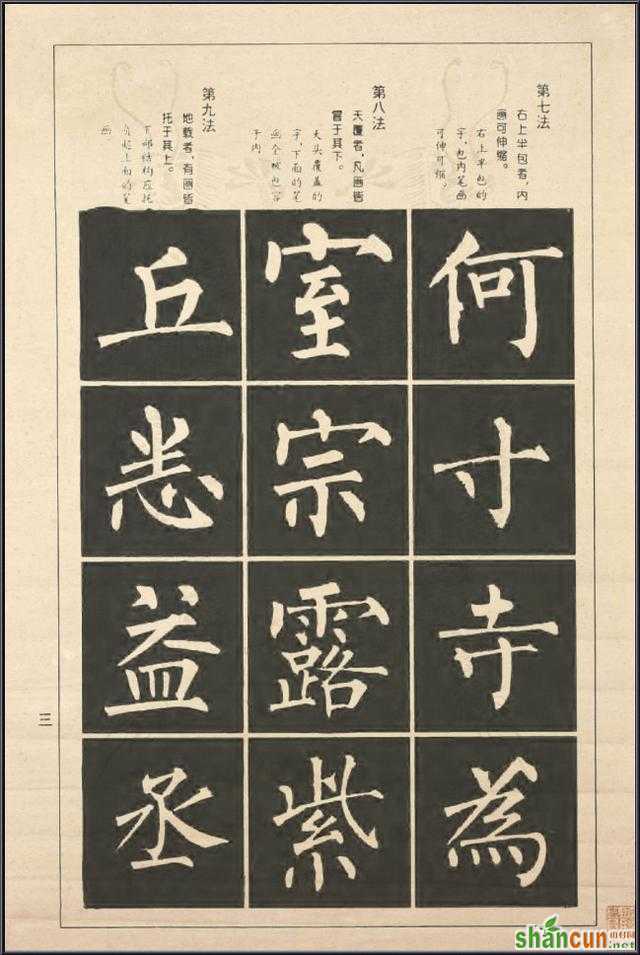 第七法
右上半包者，内
画可伸缩。
右上半包的
字，包内笔画
可伸可缩。
何
寸
寺
為
第八法
天覆者，凡画皆
冒于其下。
天头覆盖的
字，下面的笔
画全被包容
于内
室
宗
露
紫
第九法
地载者，有画皆
托于其上。
下部结构应托
负起上面的笔
画
丘
益
丞
三
shancun
.net